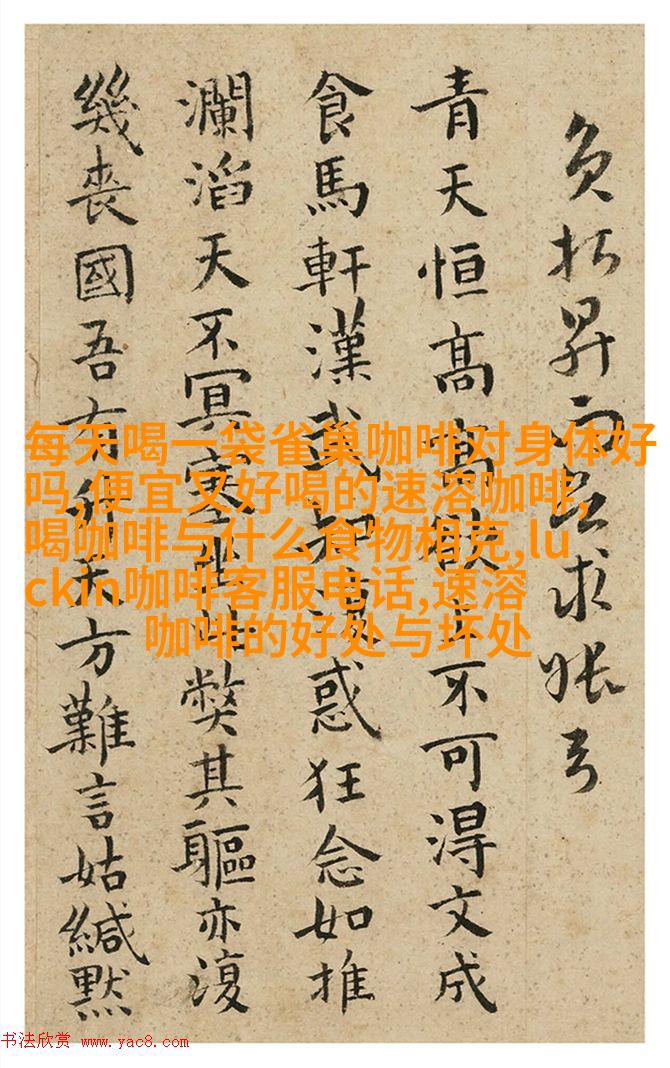 求
青天恒高高欲不可得文成
食馬軒漢武復惑狂念如推
瀾滔天不冥塞弊其軀亦復
幾喪國吾有升天方難言姑緘默
每天喝一袋雀巢咖啡对身体好
吗,便宜又好喝的速溶咖啡,
喝咖啡与什么食物相克,lu
ckin咖啡客服电话,速溶
咖啡的好处与坏处
书法欣赏 www.yac8.com